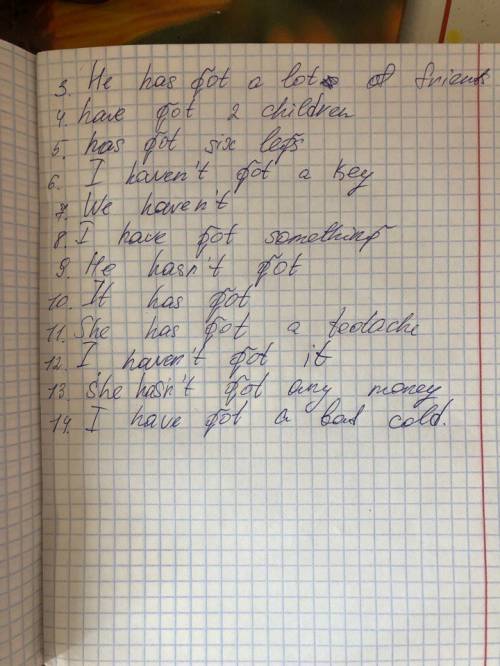 3. He has got a lot of friends
4. have got 2 children
5. has got six legs
6. I haven't got a key
7. We haven't
8. I have got something
9. He hasn't got
10. It has got
11. She has got a toolache
12. I haven't got it
13. She hasn't got any money
14. I have got a bad cold.